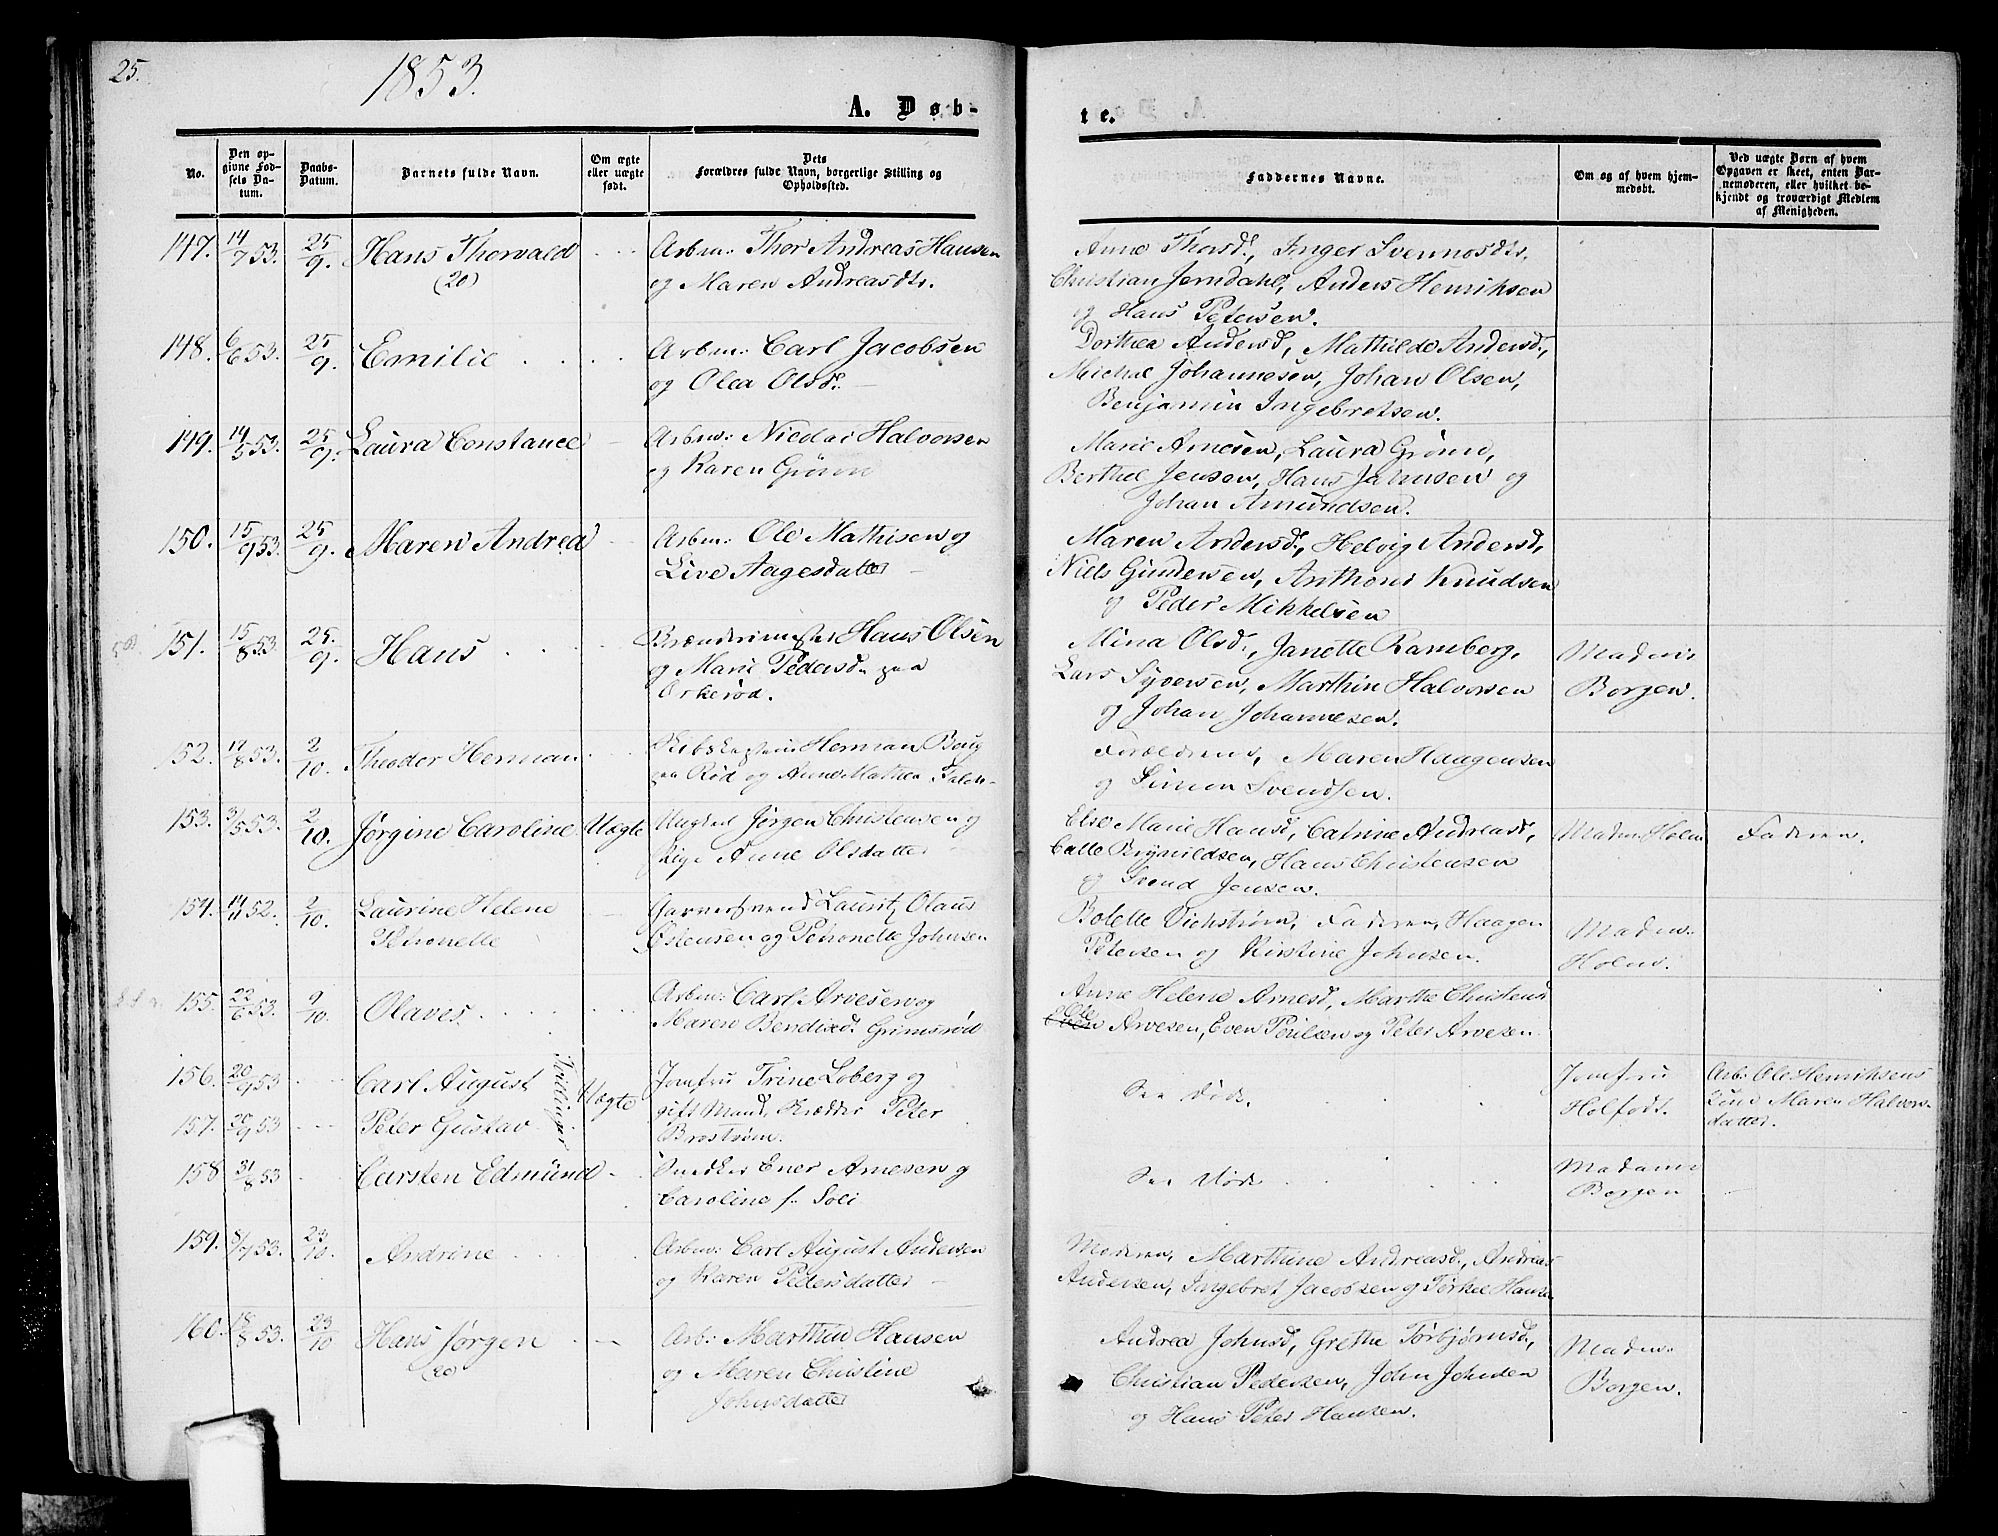 25.
1853.
A. Døb-
te.
No.
Den op-
givne Fød-
sels Da-
tum.
Daabs-
Datum.
Barnets fulde Navn.
Om ægte
eller uægte
født.
Dets
Forældres fulde Navn, borgerlige Stilling og
Opholdssted.
Faddernes Navne.
Om og af hvem hjem-
medøbt.
Ved uægte Børn af hvem
Opgaven er skeet, enten Bar-
nemoderen, eller hvilket be-
kjendt og troværdigt Medlem
af Menigheden.
147. 14/7 53. 25/9. Hans Thorvald
(20)
Arbm: Thor Andreas Hansen
og Maren Andreasdtr.
Anne Thorsd., Inger Svennosdtr,
Christian Jerndahl, Anders Henriksen
og Hans Petersen.
148. 6/6 53. 25/9. Emilie
Arbm: Carl Jacobsen
og Olea Olsd.
Dorthea Andersd, Mathilde Andersd,
Michal Johannesen, Johan Olsen,
Benjamin Ingebretsen.
149. 14/5 53. 25/9. Laura Constance
Arbm: Nicolai Halvorsen
og Karen Grönn
Marie Arnesen, Laura Grönn,
Berthel Jensen, Hans Jahnsen og
Johan Amundsen.
150. 15/9 53. 25/9. Maren Andrea
Arbm: Ole Mathisen og
Live Aagesdatter
Maren Andersd., Helvig Andersd,
Niels Gundersen, Anthoni Knudsen
og Peder Mikkelsen
151. 15/8 53. 25/9. Hans
Brænderimester Hans Olsen
og Marie Pedersd. paa
Orkerød.
Mina Olsd., Janette Ramberg,
Lars Syversen, Marthin Halvorsen
og Johan Johannesen.
Madam
Borgen.
152. 17/8 53. 2/10. Theodor Herman
Skibskaptein Herman Baug
paa Rød og Anne Mathea Falch
Forældrene, Maren Haagensen
og Simon Svendsen.
153. 3/5 53. 2/10. Jørgine Caroline Uægte
Ungkarl Jørgen Christensen og
Pige Anne Olsdatter
Else Marie Hansd, Catrine Andreasd,
Calle Brynildsen, Hans Christensen
og Svend Jensen.
Madam Holm
Faderen.
154. 14/11 52. 2/10. Laurine Helene
Petronelle
Garversvend Lauritz Olaus
Østensen og Petronelle Johnsen
Bolette Vichstrøm, Faderen, Haagen
Petersen og Kirstine Johnsen.
Madm.
Holm.
155. 22/6 53. 9/10 Olaves
Arbm: Carl Arvesen og
Maren Bendixsd. Grimsrød
Anne Helene Arnesd, Marthe Christens
Ole
Arvesen, Even Poulsen og Peter Arvesen.
156. 20/9 53 Carl August
Tvillinger
Uægte
Jomfru Trine Loberg og
gift Mand, Krædder Peter
Brostrøm.
157. 20/9 53 Peter Gustav
See Døde.
Jomfru
Holfodt.
Arb: Ole Henriksens
Enke Maren Halvors-
datter.
158 31/8 53 Carsten Edmund
Snedker Ener Arnesen og
Caroline f. Soli
See Døde
Madame
Borgen
159. 8/7 53. 23/10. Andrine
Arbm: Carl August Andersen
og Karen Pedersdatter
Moderen, Marthine Andreasd., Andreas
Andersen, Ingebret Jacobsen og Torkel Hansen
160. 18/8 53. 23/10 Hans Jørgen
(20)
Arb: Marthin Hansen
og Maren Christine
Johnsdatter
Andrea Johnsd, Grethe Torbjørnsd,
Christian Pedersen, John Johnsen
og Hans Peter Hansen.
Madm.
Borgen.